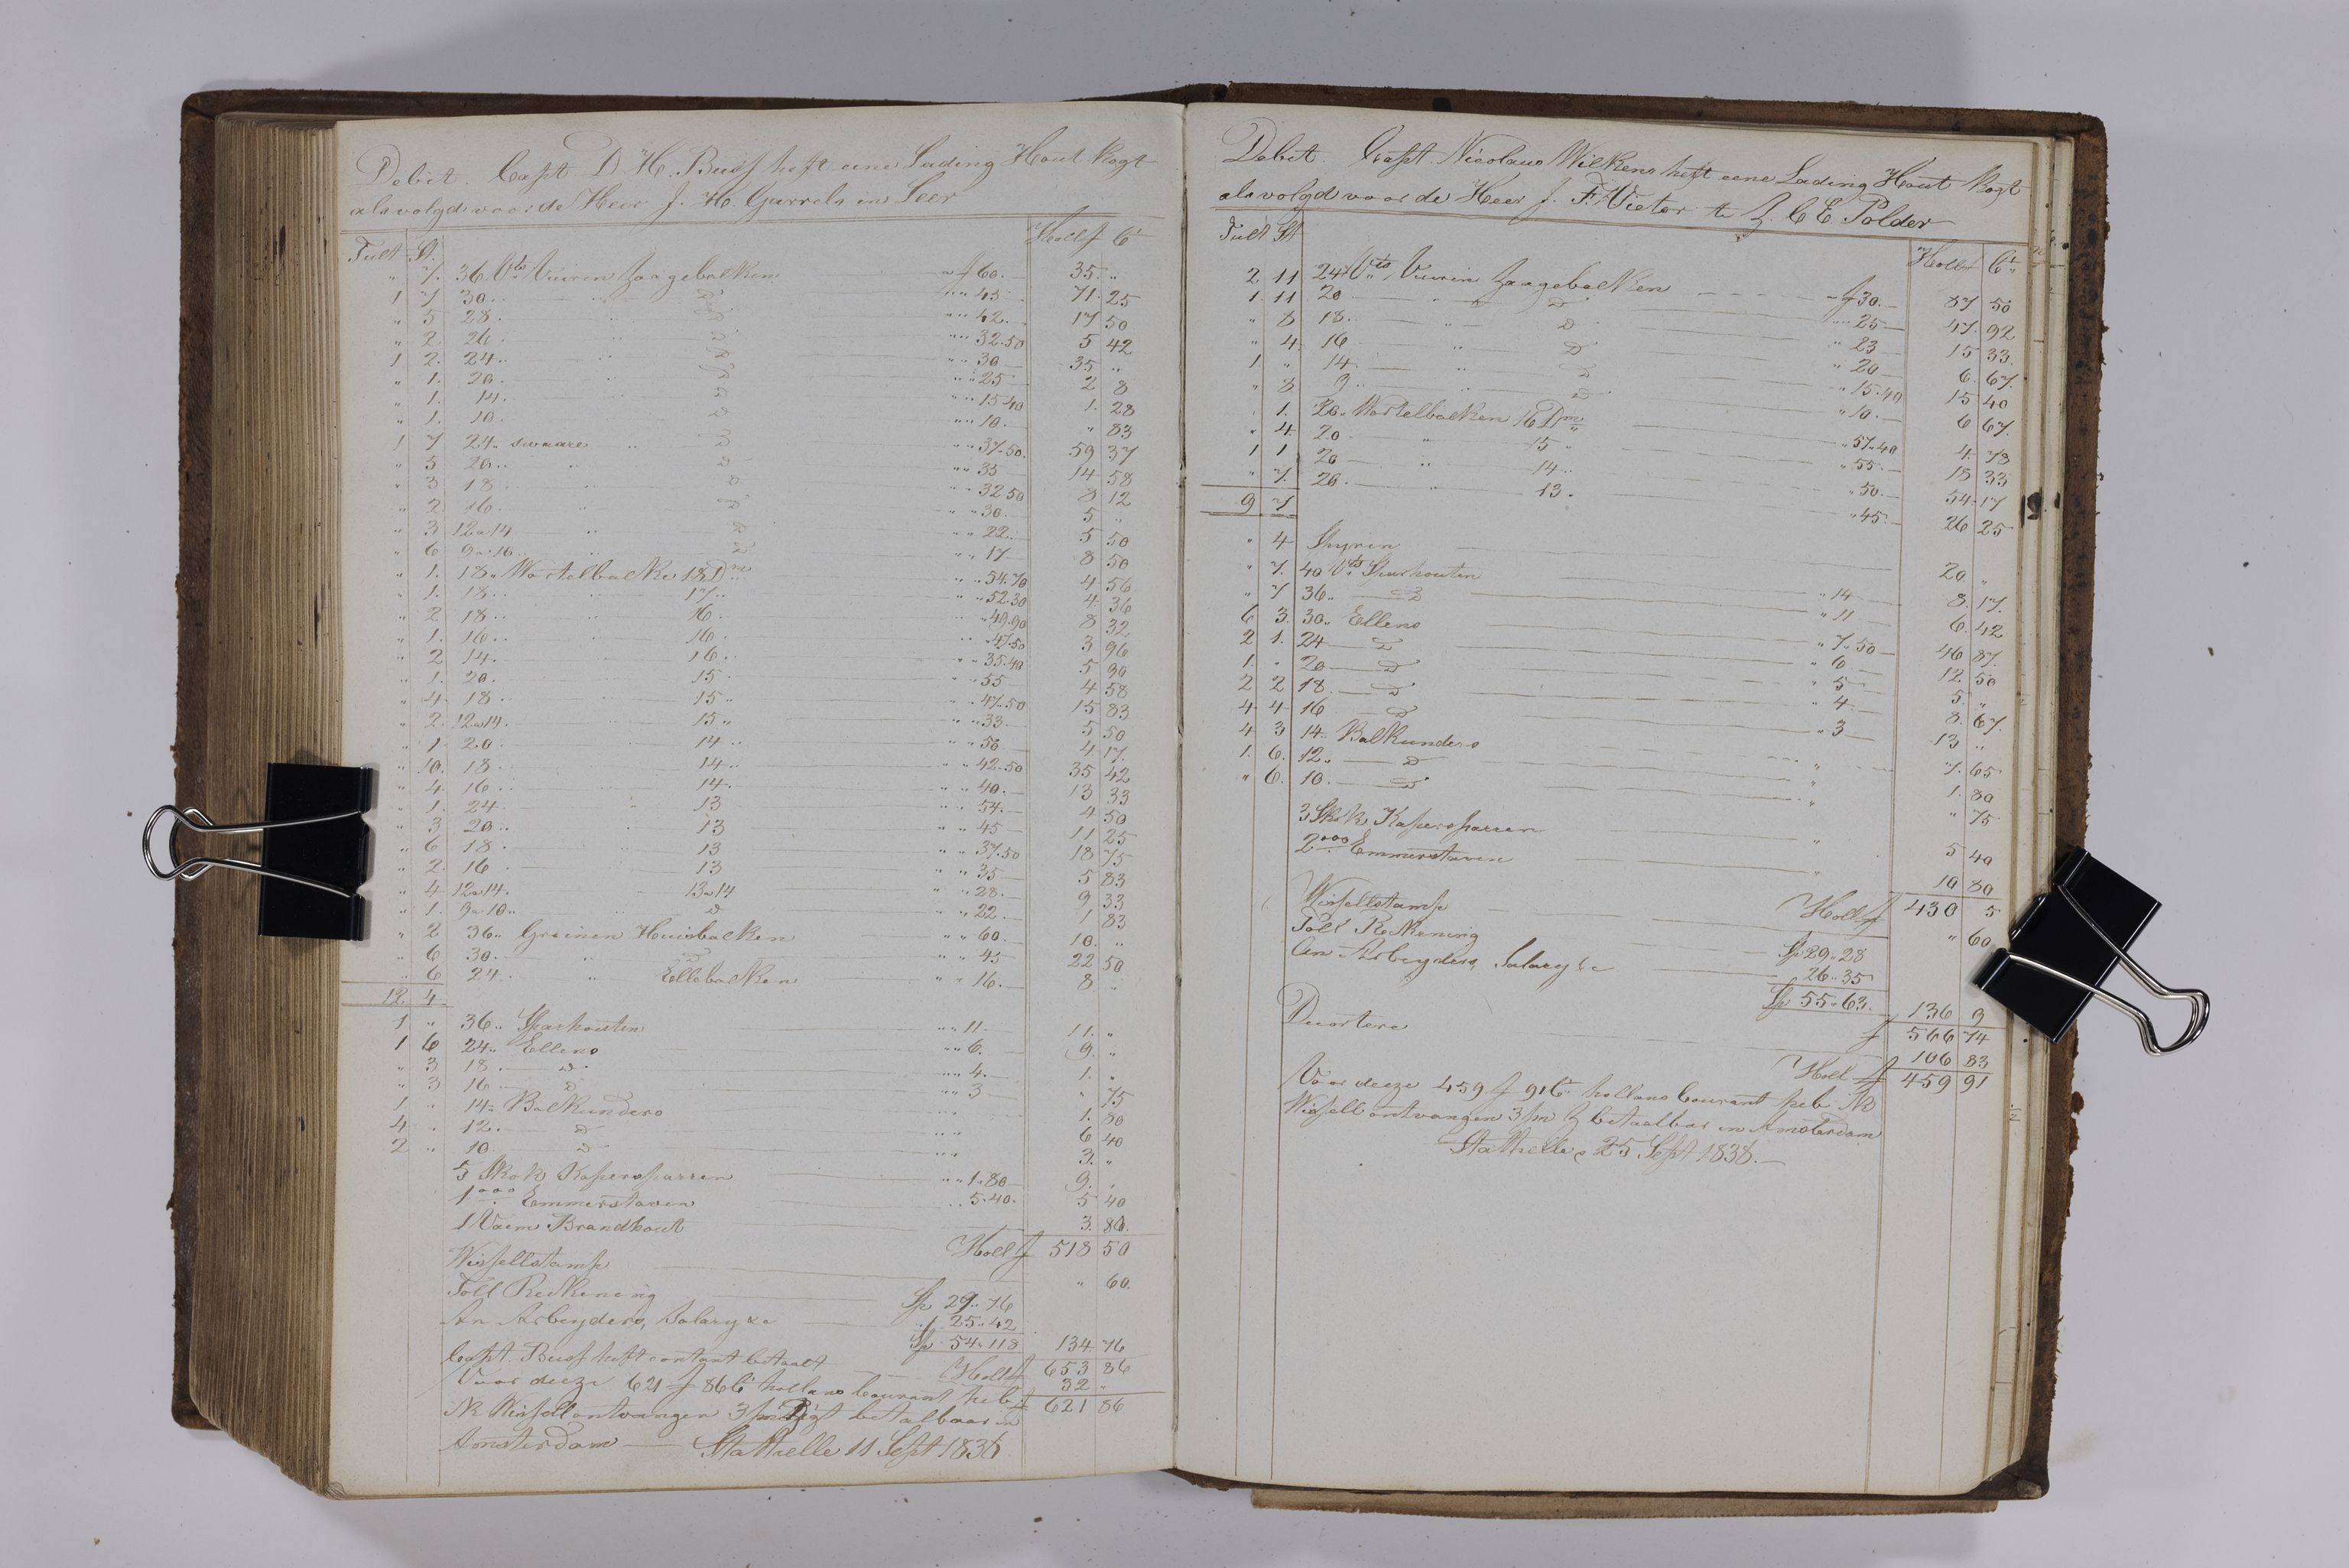 Debet. Capt. D. H. Buss heft eene Lading Hout Kogt
als volgd voor de Heer J. H. Garrels in Leer
Tult St. Holl f Ct
" 7. 36 Vts Vuuren Zaagebalken " f 60. 35 "
1 7 30 " " D " " 45 71. 25
" 5 28 " " D " " 42. 17 50
" 2 26 " " D " " 32.50 5 42
1 2. 24 " " D " " 30 35 "
" 1. 20. " D " " 25 2 8
" 1. 14. " D " " 15 40 1. 28
" 1. 10. " D " " 10. " 83
1 7 24 " swaare " D " " 37.50. 59 37
" 5 20 " " D " " 35 14 58
" 3 18 " " D " " 32.50 8 12
" 2. 16. " D " " 30. 5 "
" 3 12 a 14 " D " " 22. 5 50
" 6 9 a 10 " " D " " 17 8 50
" 1. 18 " Wortelbalke 18 Dm " " 54.70 4 56
" 1. 18 " " 17 " " " 52.30 4 36
" 2 18 " " 16. " " 49.90 8 32
" 1. 16 " " 16. " " 47.50 3 96
" 2 14. " 16. " " 35.40 5 90
" 1. 20. " 15. " " 55 4 58
" 4 18 " " 15 " " " 47.50 15 83
" 2. 12 a 14. " 15 " " " 33 5 50
" 1 20 " 14 " " " 50 4 17.
" 10. 18. " 14 " " " 42.50 35 42
" 4 16 " " 14. " " 40. 13 33
" 1. 24. " 13 " " 54. 4 50
" 3 20 " " 13 " " 45 11 25
" 6 18 " " 13 " " 37.50 18 75
" 2. 16 " 13 " " 35 5 83
" 4 12 a 14. 13 a 14 " " 28. 9 33
" 1. 9 a 10 " " D " " 22. 1 83
" 2 36 " Greinen Huisbalken " " 60. 10. "
" 6 30. " D " " 45 22 50
" 6 24. " Ellebalken " " 16. 8 "
12. 4
1 " 36 " Sparhouten " " 11. 11. "
1 6 24 " Ellens " " 6. 9. "
" 3 18. D " " 4. 1. "
" 3 16 D " " 3 " 75
1 " 14 " Balkunders " " 1. 80
4 " 12. D " " 6 40
2 " 10. D " " 3. "
5 Skok Kapersparren " " 1.80 9. "
1000 Emmerstaven " " 5.40. 5 40
1 Vaem Brandhout 3. 80.
Holl f 518 50
Wissellstamp " 60.
Toll Reckening Sp 29 " 76
An Arbeyders, Salary &c " 25 " 42
Sp 54 " 118 134 76
Holl f 653 86
Capt. Buss heft contant betaalt 32 "
Voor deeze 621 f 86 Ct hollans Courant heb f 621 86
Ik Wissell ontvangen 3 m Zigt betalbaar in
Amsterdam — Stathelle 11 Sept 1838
Debet. Capt. Nicolaus Wilkens heft eene Lading Hout Kogt
als volgd voor de Heer J. F. Vietor te Z. C E. Polder
Tult St Holl f Ct
2 11 24 Vts Vuuren Zaagebalken f 30. 87 50
1. 11 20 " D " 25 47. 92
" 8 18. " D " 23 15 33.
" 4 16 " D " 20 6. 67.
1. " 14. " D " 15.40 15 40
" 8 9 " " D " 10. 6 67.
" 1. 20 " Wortelbalken 16 Dm " 57.40 4. 78
" 4. 20 " 15 " " 55. 18 33
1 1 20 " 14 " " 50. 54. 17
" 7. 20. " 13. " 45. 26 25
9 7
" 4 Spyren 20. "
" 7. 40 Vts Sparhouten " 14 8. 17.
" 7 36 " D " 11 6. 42
6 3. 30 " Ellens " 7.50 46 87.
2 1. 24 D " 6 12. 50
1. " 20 D " 5 5. "
2 2 18. D " 4. 8. 67.
4 4 16 D " 3 13 "
4 3 14 " Balkunders " 7. 65
1. 6. 12 " D " 1. 80
" 6. 10. D " " 75
3 Skok Kapersparren " 5 40
2000 Emmerstaven " 10 80
Holl f 430 5
Wissellstamp " 60
Toll Reckening Sp 29 " 28
An Arbeyders, Salary &c 26 " 35
Sp 55 " 63. 136 9
f 566 74
106 83
Holl f 459 91
Voor deeze 459 f 91 Ct hollans Courant heb Ik
Wissell ontvangen 3 m Z betaalbar in Amsterdam
Stathelle 25 Sept 1838.